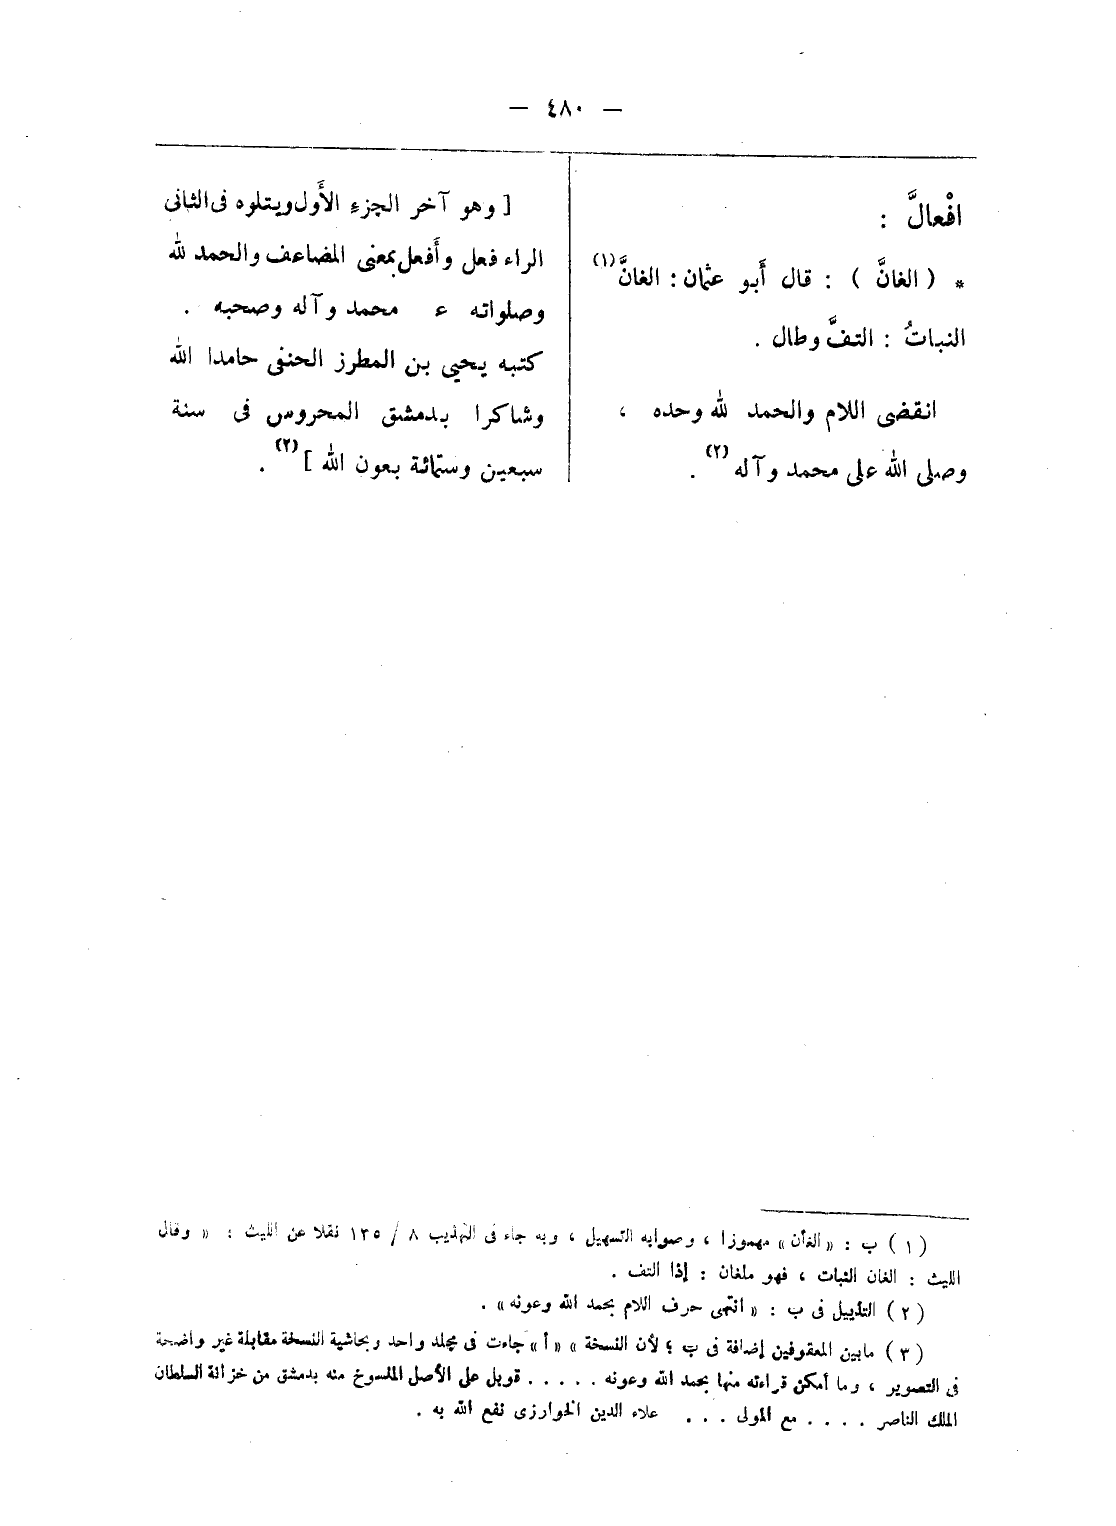 — ٤٨٠ —
افْعالَّ :
* ( الغانَّ ) : قال أَبو عثمان : الغانَّ(١)
النباتُ : التفَّ وطال .
انقضى اللام والحمد لله وحده ،
وصلى الله على محمد وآله(٢) .
[ وهو آخر الجزءِ الأَول ويتلوه فى الثانى
الراء فعل وأَفعل بمعنى المضاعف والحمد لله
وصلواته ء محمد وآله وصحبه .
كتبه يحيى بن المطرز الحنفى حامدا الله
وشاكرا بدمشق المحروس فى سنة
سبعين وستمائة بعون الله ](٣) .
( ١ ) ب : « الغأن » مهموزا ، وصوابه التسهيل ، وبه جاء فى التهذيب ٨ / ١٣٥ نقلا عن الليث : « وقال
الليث : الغان النبات ، فهو ملغان : إذا التف .
( ٢ ) التذييل فى ب : « انتهى حرف اللام بحمد الله وعونه » .
( ٣ ) مابين المعقوفين إضافة فى ب ؛ لأن النسخة « أ » جاءت فى مجلد واحد وبحاشية النسخة مقابلة غير واضحة
فى التصوير ، وما أمكن قراءته منها بحمد الله وعونه . . . . . قوبل على الأصل المنسوخ منه بدمشق من خزانة السلطان
الملك الناصر . . . . مع المولى . . . علاء الدين الخوارزى نفع الله به .